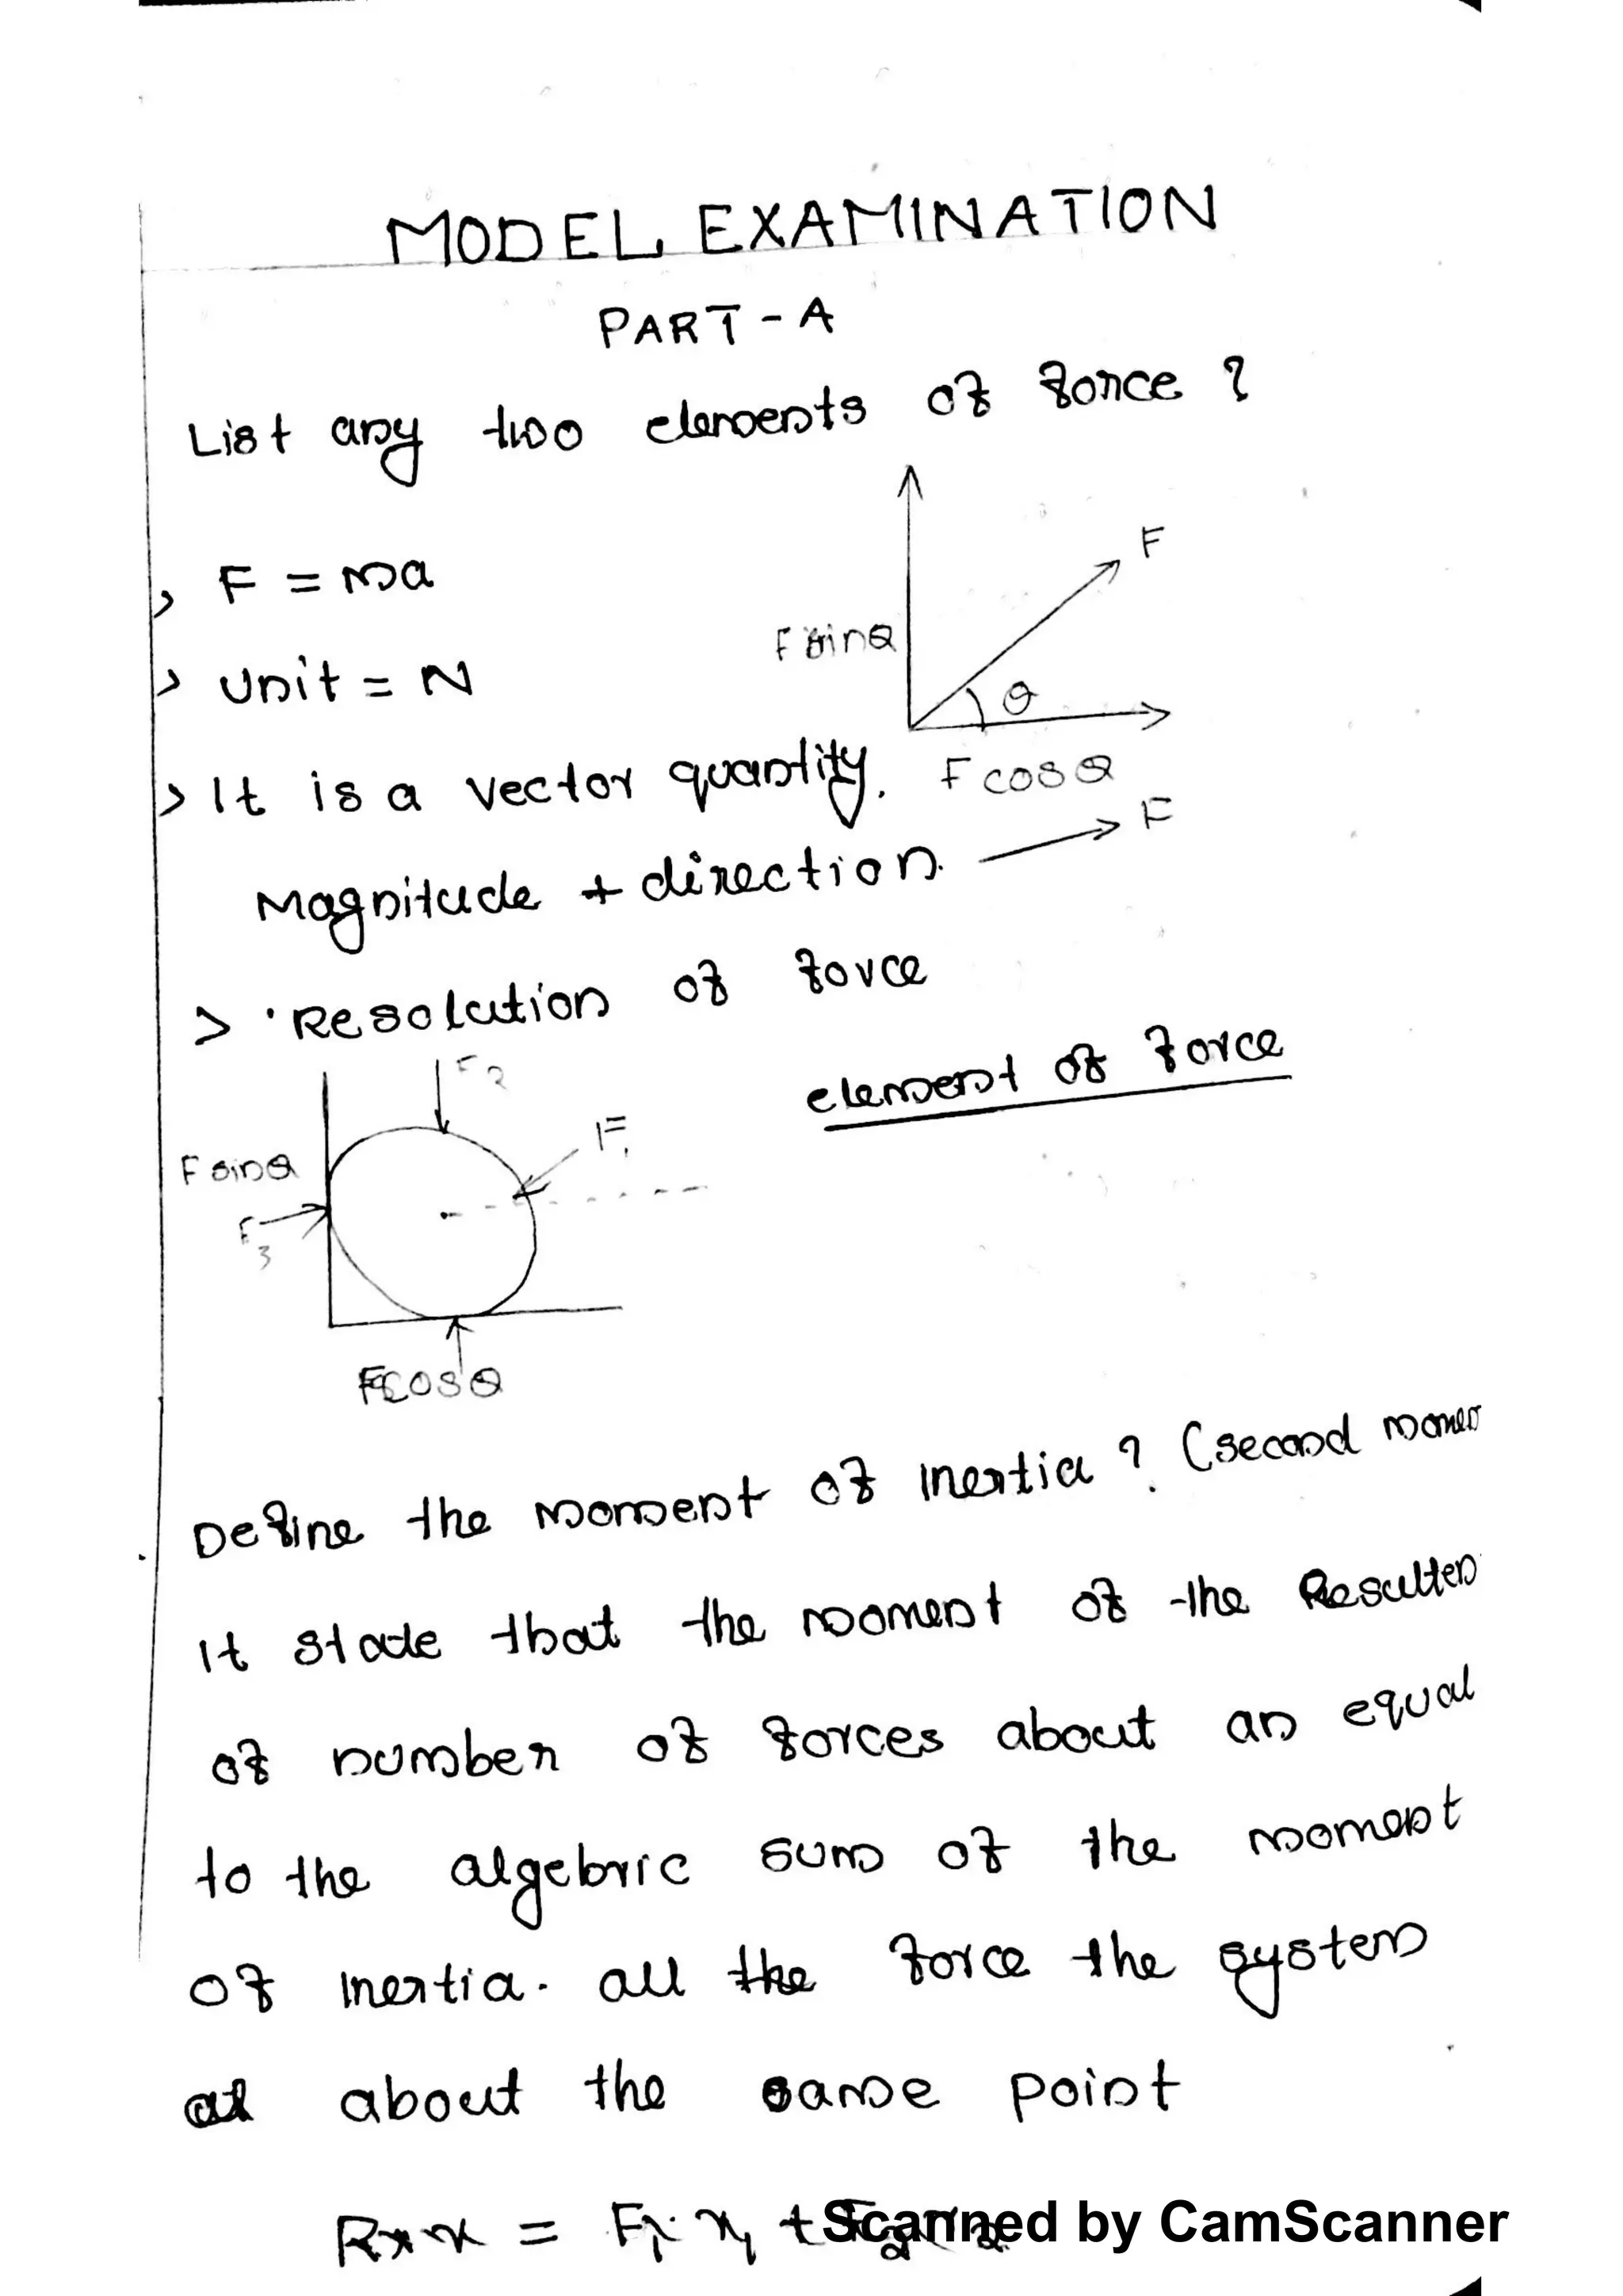 MODEL EXAMINATION
PART-A
List any two elements of force ?
> F = ma
> Unit = N
> It is a vector quantity.
Magnitude + direction.
F
F sinθ
θ
F cosθ
F
> Resolution of force
element of force
F2
F1
F sinθ
F3
F cosθ
Define the moment of Inertia ? (second momen
It state that the moment of the Resulten
of number of forces about an equal
to the algebric sum of the moment
of Inertia. all the force the system
about the same point
Scanned by CamScanner